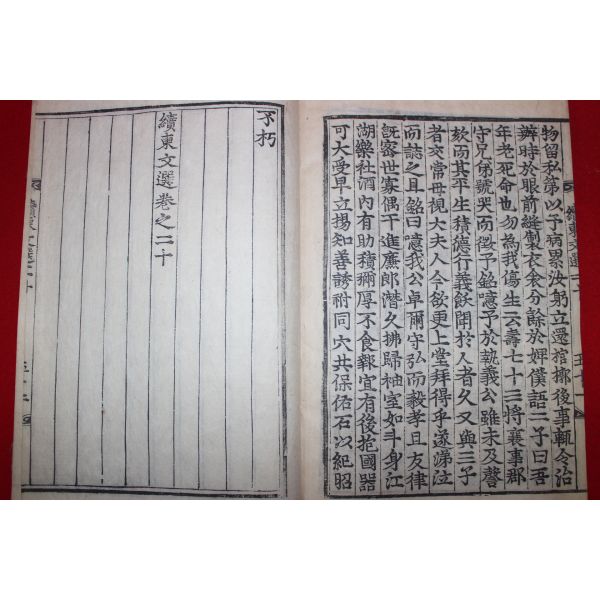 物留私第以予病累汝躬立還棺槨後事輒令治
辦時於眼前縫製衣衾分餘於婢僕語二子曰吾
年老死命也勿為我傷生云壽七十三將襄事郡
守兄弟號哭而徵予銘噫予於執義公雖未及謦
欬而其平生積德行義飫聞於人者久又與三子
者交常母視大夫人今欲更上堂拜得乎遂涕泣
而誌之且銘曰噫我公卓爾守弘而毅孝且友律
旣容世寡偶干進廉郎潛久拂歸袖室如斗身江
湖樂社酒內有助積彌厚不食報宜有後抱國器
可大受早立揚知善誘祔同穴共保佑石以紀昭
不朽
續東文選卷之二十